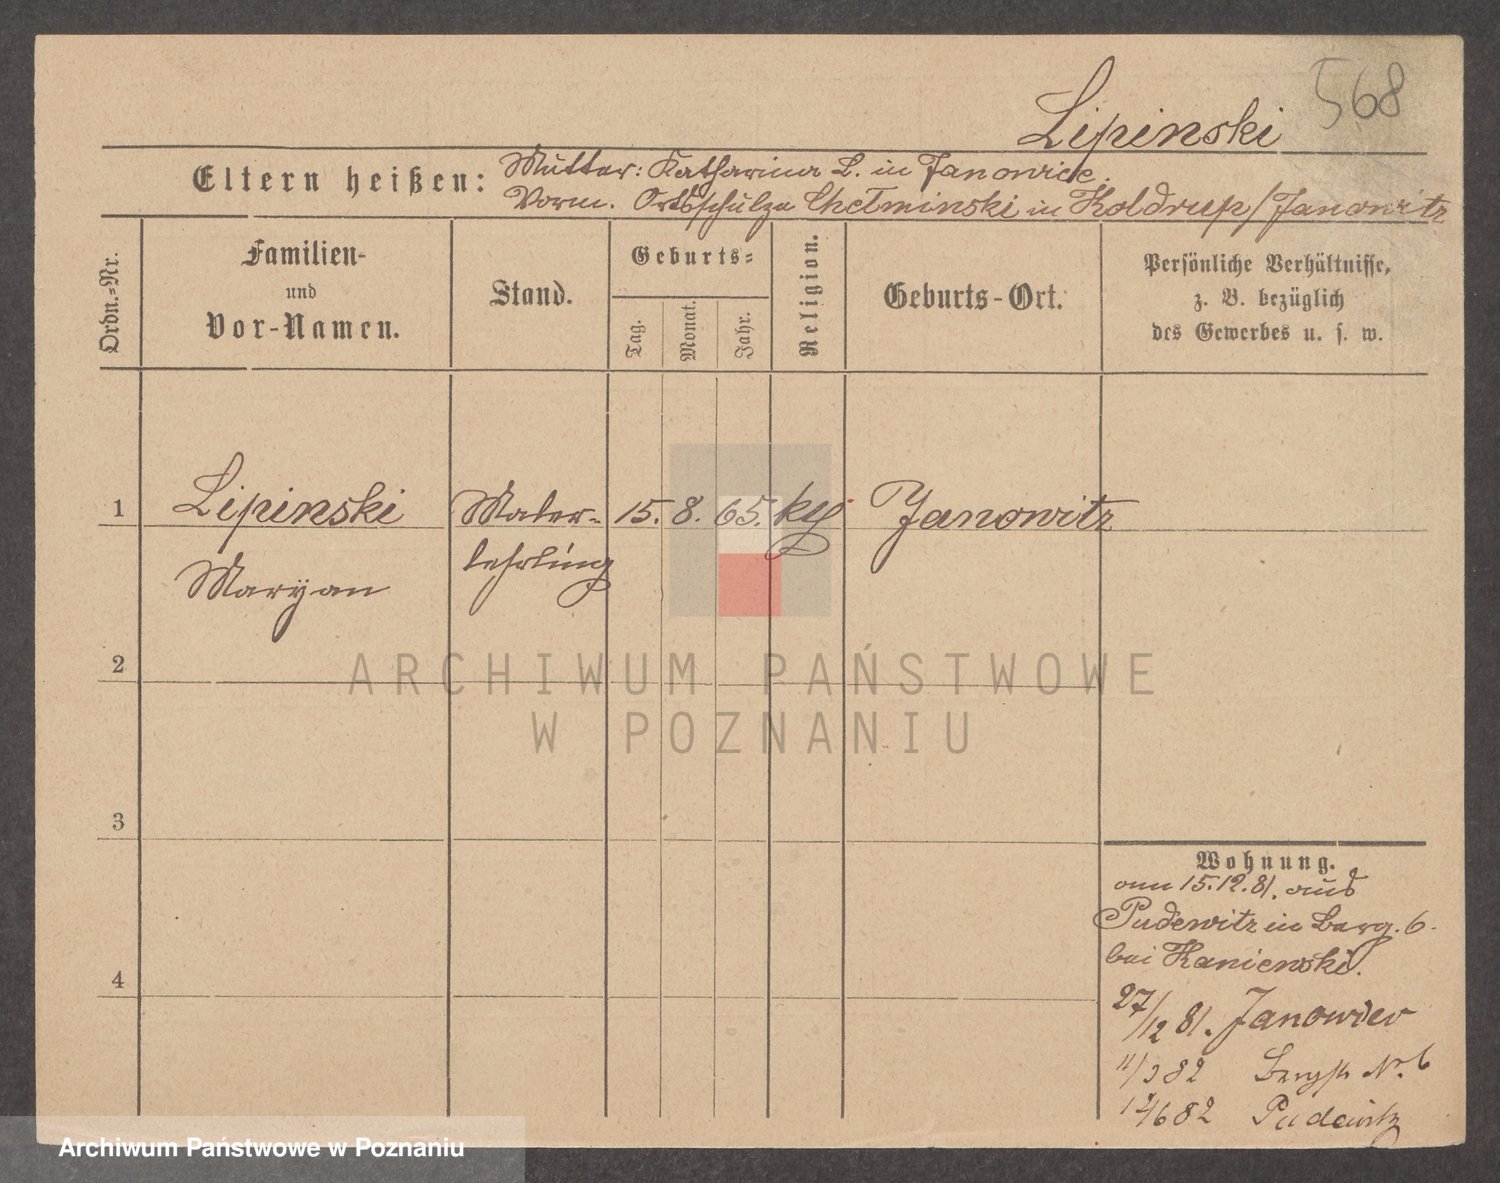 568
Lipinski
Eltern heißen: Mutter: Katharina L. in Janowice.
Vorm. Ortsschulze Chełminski in Koldrup/Janowitz
Ordn.-Nr.
Familien-
und
Vor-Namen.
Stand.
Geburts-
Tag.
Monat.
Jahr.
Religion.
Geburts-Ort.
Persönliche Verhältnisse,
z. B. bezüglich
des Gewerbes u. s. w.
1 Lipinski Maler- 15. 8. 65. Janowitz
Maryan lehrling
2
ARCHIWUM PAŃSTWOWE
W POZNANIU
3
Wohnung.
15.12.81. aus
Pudewitz in Berg. 6.
bei Kaniewski.
4
27/12 81. Janowiec
11/3 82 Bergstr No. 6
12/6 82 Pudewitz
Archiwum Państwowe w Poznaniu